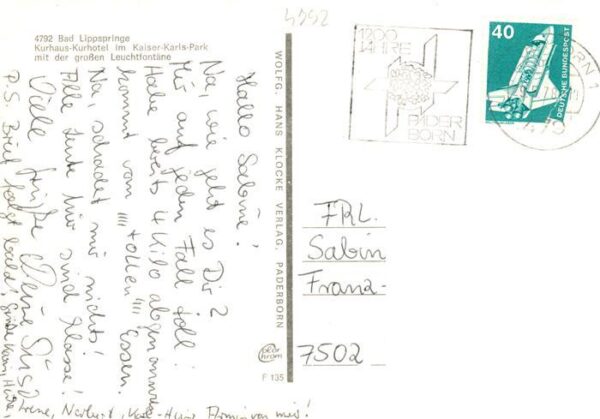 4792 Bad Lippspringe
Kurhaus-Kurhotel im Kaiser-Karls-Park
mit der großen Leuchtfontäne
4792
Hallo Sabine!
Na, wie geht es Dir?
Mir auf jeden Fall toll!
Habe bereits 4 Kilo abgenommen
kommt vom "" tollen "" Essen.
Na, schadet mir nichts!
Alle Leute hier sind Klasse!
Viele Grüße Deine
P.S. Brief folgt bald!
Irene, Norbert, Karl-Heinz von mir!
WOLFG. HANS KLOCKE VERLAG, PADERBORN
color chrom
F 135
1200
JAHRE
PADER
BORN
40
DEUTSCHE BUNDESPOST
BORN 1
479
FRL.
Sabin
Franz-
7502